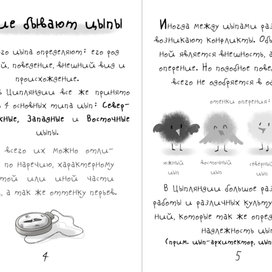 ие бывают цыпы
го цыпа определяют: его род
й, поведение, внешний вид и
происхождение.
Цыпляндии все же принято
4 основных типа цып: Север-
жные, Западные и Восточные
цыпы.
всего их можно отли-
по наречию, характерному
той или иной части
, а так же оттенку перьев.
4
Иногда между цыпами ра
возникают конфликты. Обы
ной является внешность, а
оперение. Но подобное пове
всего не одобряется в о
оттенки оперения:
южный восточный северны
цып цып цып
В Цыпляндии большое ра
работы и различных культу
ний, которые так же опред
надлежность цы
(прим. цып-архитектор, цып
5